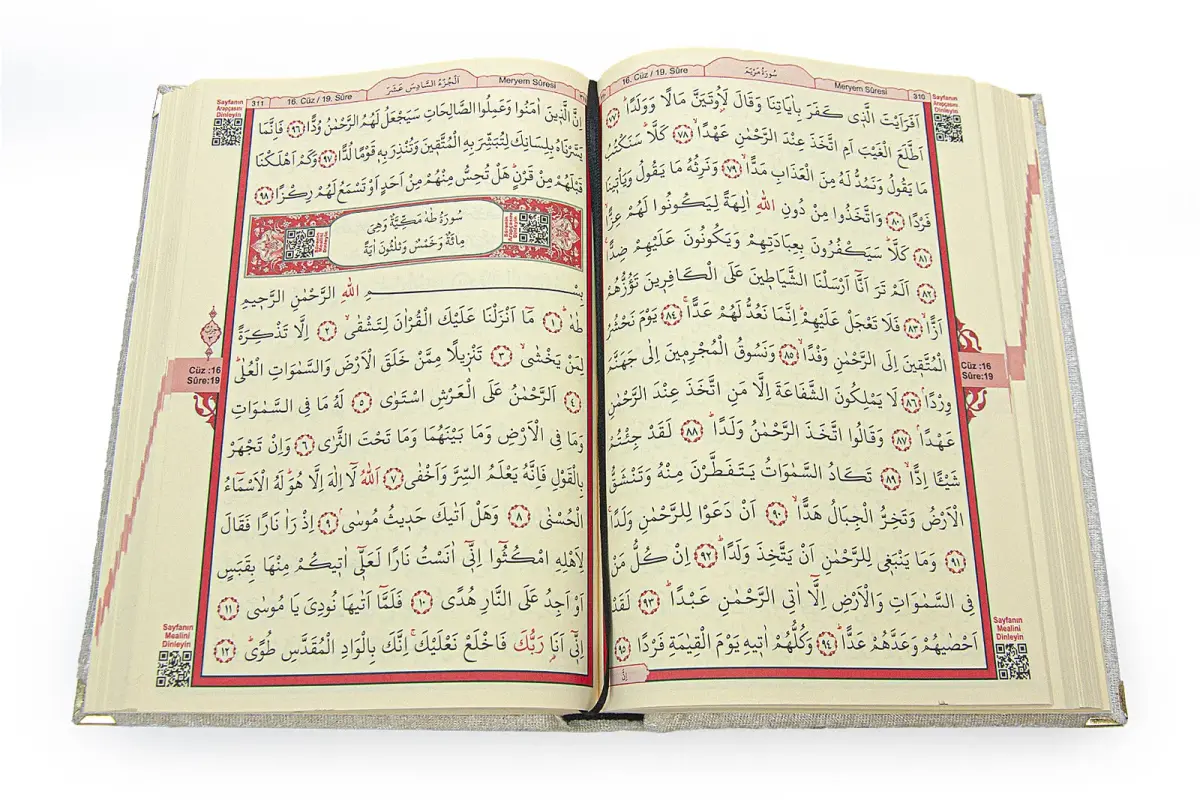 16. Cüz / 19. Sûre سُورَةُ مَرْيَمَ Meryem Sûresi 310
Sayfanın
Arapçasını
Dinleyin
اَفَرَاَيْتَ الَّذ۪ي كَفَرَ بِاٰيَاتِنَا وَقَالَ لَاُو۫تَيَنَّ مَالًا وَوَلَدًاۜ ﴿٧٧﴾
اَطَّلَعَ الْغَيْبَ اَمِ اتَّخَذَ عِنْدَ الرَّحْمٰنِ عَهْدًاۙ ﴿٧٨﴾ كَلَّاۜ سَنَكْتُبُ
مَا يَقُولُ وَنَمُدُّ لَهُ مِنَ الْعَذَابِ مَدًّاۙ ﴿٧٩﴾ وَنَرِثُهُ مَا يَقُولُ وَيَأْت۪ينَا
فَرْدًا ﴿٨٠﴾ وَاتَّخَذُوا مِنْ دُونِ اللّٰهِ اٰلِهَةً لِيَكُونُوا لَهُمْ عِزًّاۙ
﴿٨١﴾ كَلَّاۜ سَيَكْفُرُونَ بِعِبَادَتِهِمْ وَيَكُونُونَ عَلَيْهِمْ ضِدًّا۟
﴿٨٢﴾ اَلَمْ تَرَ اَنَّٓا اَرْسَلْنَا الشَّيَاط۪ينَ عَلَى الْكَافِر۪ينَ تَؤُزُّهُمْ
اَزًّاۙ ﴿٨٣﴾ فَلَا تَعْجَلْ عَلَيْهِمْۜ اِنَّمَا نَعُدُّ لَهُمْ عَدًّاۚ ﴿٨٤﴾ يَوْمَ نَحْشُرُ
الْمُتَّق۪ينَ اِلَى الرَّحْمٰنِ وَفْدًاۙ ﴿٨٥﴾ وَنَسُوقُ الْمُجْرِم۪ينَ اِلٰى جَهَنَّمَ
وِرْدًاۢ ﴿٨٦﴾ لَا يَمْلِكُونَ الشَّفَاعَةَ اِلَّا مَنِ اتَّخَذَ عِنْدَ الرَّحْمٰنِ
عَهْدًاۢ ﴿٨٧﴾ وَقَالُوا اتَّخَذَ الرَّحْمٰنُ وَلَدًاۜ ﴿٨٨﴾ لَقَدْ جِئْتُمْ
شَيْـًٔا اِدًّاۙ ﴿٨٩﴾ تَكَادُ السَّمٰوَاتُ يَتَفَطَّرْنَ مِنْهُ وَتَنْشَقُّ
الْاَرْضُ وَتَخِرُّ الْجِبَالُ هَدًّاۙ ﴿٩٠﴾ اَنْ دَعَوْا لِلرَّحْمٰنِ وَلَدًاۚ
﴿٩١﴾ وَمَا يَنْبَغ۪ي لِلرَّحْمٰنِ اَنْ يَتَّخِذَ وَلَدًاۜ ﴿٩٢﴾ اِنْ كُلُّ مَنْ
فِي السَّمٰوَاتِ وَالْاَرْضِ اِلَّٓا اٰتِي الرَّحْمٰنِ عَبْدًاۜ ﴿٩٣﴾ لَقَدْ
اَحْصٰيهُمْ وَعَدَّهُمْ عَدًّاۜ ﴿٩٤﴾ وَكُلُّهُمْ اٰت۪يهِ يَوْمَ الْقِيٰمَةِ فَرْدًا ﴿٩٥﴾
اِنَّ
Cüz :16
Sûre:19
Sayfanın
Mealini
Dinleyin
311 16. Cüz / 19. Sûre اَلْجُزْءُ السَّادِسَ عَشَرَ Meryem Sûresi
Sayfanın
Arapçasını
Dinleyin
اِنَّ الَّذ۪ينَ اٰمَنُوا وَعَمِلُوا الصَّالِحَاتِ سَيَجْعَلُ لَهُمُ الرَّحْمٰنُ وُدًّا ﴿٩٦﴾ فَاِنَّمَا
يَسَّرْنَاهُ بِلِسَانِكَ لِتُبَشِّرَ بِهِ الْمُتَّق۪ينَ وَتُنْذِرَ بِه۪ قَوْمًا لُدًّا ﴿٩٧﴾ وَكَمْ اَهْلَكْنَا
قَبْلَهُمْ مِنْ قَرْنٍۜ هَلْ تُحِسُّ مِنْهُمْ مِنْ اَحَدٍ اَوْ تَسْمَعُ لَهُمْ رِكْزًا ﴿٩٨﴾
سُورَةُ طٰهٰ مَكِّيَّةٌ وَهِيَ
مِائَةٌ وَخَمْسٌ وَثَلٰثُونَ اٰيَةً
بِسْــــــــمِ اللّٰهِ الرَّحْمٰنِ الرَّح۪يمِ
طٰهٰۜ ﴿١﴾ مَٓا اَنْزَلْنَا عَلَيْكَ الْقُرْاٰنَ لِتَشْقٰىۙ ﴿٢﴾ اِلَّا تَذْكِرَةً
لِمَنْ يَخْشٰىۙ ﴿٣﴾ تَنْز۪يلًا مِمَّنْ خَلَقَ الْاَرْضَ وَالسَّمٰوَاتِ الْعُلٰىۜ
﴿٤﴾ اَلرَّحْمٰنُ عَلَى الْعَرْشِ اسْتَوٰى ﴿٥﴾ لَهُ مَا فِي السَّمٰوَاتِ
وَمَا فِي الْاَرْضِ وَمَا بَيْنَهُمَا وَمَا تَحْتَ الثَّرٰى ﴿٦﴾ وَاِنْ تَجْهَرْ
بِالْقَوْلِ فَاِنَّهُ يَعْلَمُ السِّرَّ وَاَخْفٰى ﴿٧﴾ اَللّٰهُ لَٓا اِلٰهَ اِلَّا هُوَۜ لَهُ الْاَسْمَٓاءُ
الْحُسْنٰى ﴿٨﴾ وَهَلْ اَتٰيكَ حَد۪يثُ مُوسٰىۢ ﴿٩﴾ اِذْ رَاٰ نَارًا فَقَالَ
لِاَهْلِهِ امْكُثُٓوا اِنّ۪ٓي اٰنَسْتُ نَارًا لَعَلّ۪ٓي اٰت۪يكُمْ مِنْهَا بِقَبَسٍ
اَوْ اَجِدُ عَلَى النَّارِ هُدًى ﴿١٠﴾ فَلَمَّٓا اَتٰيهَا نُودِيَ يَا مُوسٰى ﴿١١﴾
اِنّ۪ٓي اَنَا۬ رَبُّكَ فَاخْلَعْ نَعْلَيْكَۚ اِنَّكَ بِالْوَادِ الْمُقَدَّسِ طُوًىۜ ﴿١٢﴾
Cüz :16
Sûre:19
Sayfanın
Mealini
Dinleyin